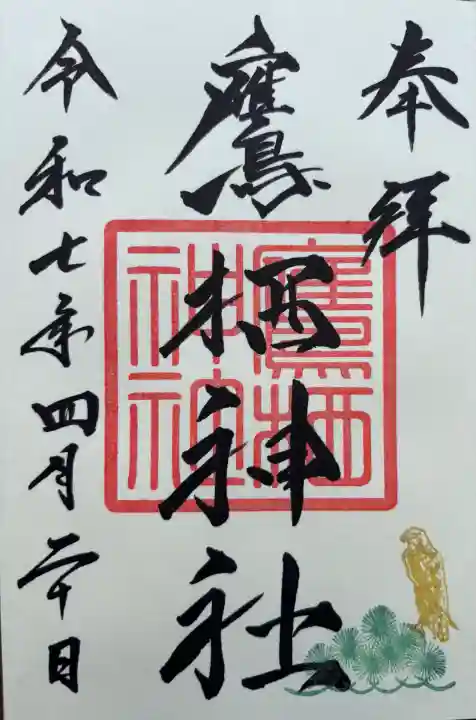 奉拝
鷹栖神社
鷹栖
神社
令和七年四月二十日